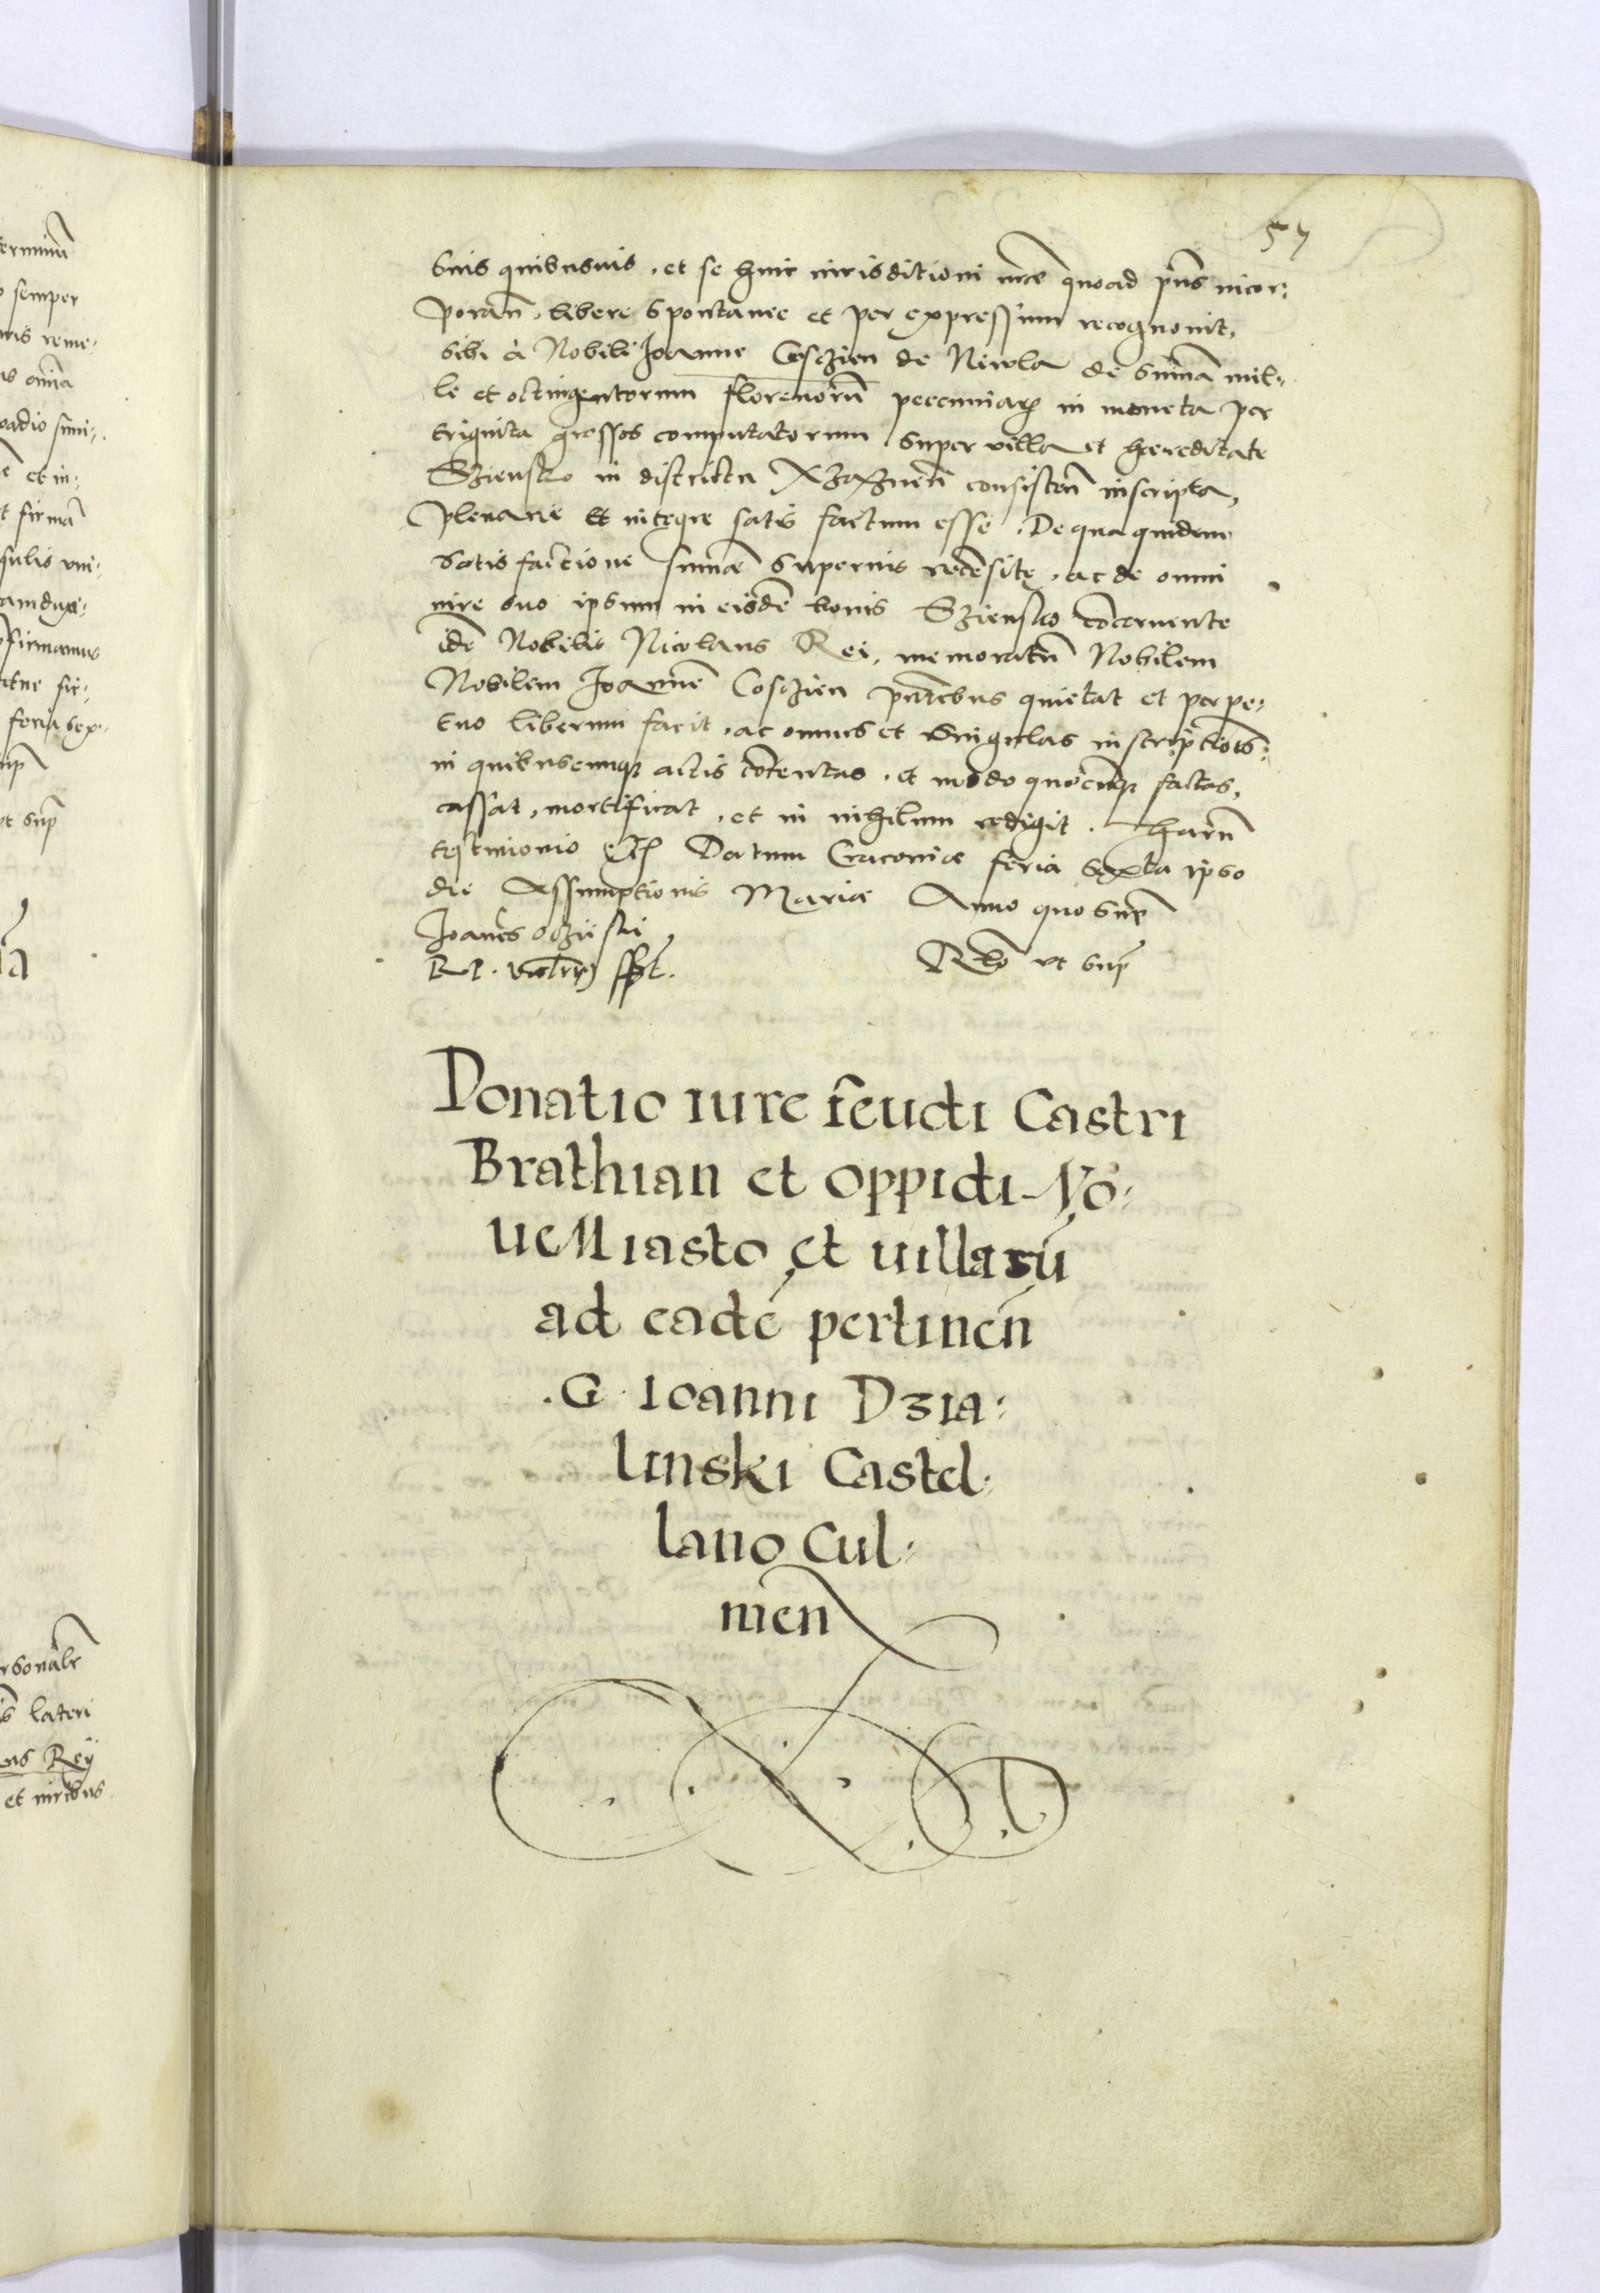 57
suis quibusuis, et se huic iurisditioni nrae quoad pns incor:
poran. libere spontanee et per expressum recognouit,
sibi à Nobili Joanne Cosczien de Nicola de summa mil:
le et octingentorum florenorū pecuniarꝫ in moneta per
triginta grossos computatorum super villa et hæreditate
Sziensko in districtu consisten inscripta,
plenarie et integre satis factum esse. De qua quidem
satisfactione summæ supernis recensitę, ac de omni
iure suo ipsum in eisdē bonis Sziensko cōcernente
idē Nobilis Nicolaus Rei, memoratū Nobilem
Nobilem Joannē Cosczien pntibus quietat et perpe:
tuo liberum facit, ac omnes et singulas inscriptiōes:
in quibuscunqꝫ actis cōtentas, et modo quōcunqꝫ factas,
cassat, mortificat, et in nihilum redigit. Harū
testimonio Datum Cracouiæ feria sexta ipso
die Assumptionis Mariæ Anno quo supᷓ
Joanēs oczii ski
R P. sspt. ut supᷓ
Donatio iure feudi Castri
Brathian et oppidi No:
ueMiasto et uillarū
ad eadē pertinēn
.G. Ioanni Dzia:
linski Castel:
lano Cul:
men
erminū
o semper
nis reme:
as omīa
vadio simi:
et in:
et firmā
gulis vni:
firmamus
feria sex:
ut supᷓ
ersonalr
is lateri
aus Reÿ
et iuribus